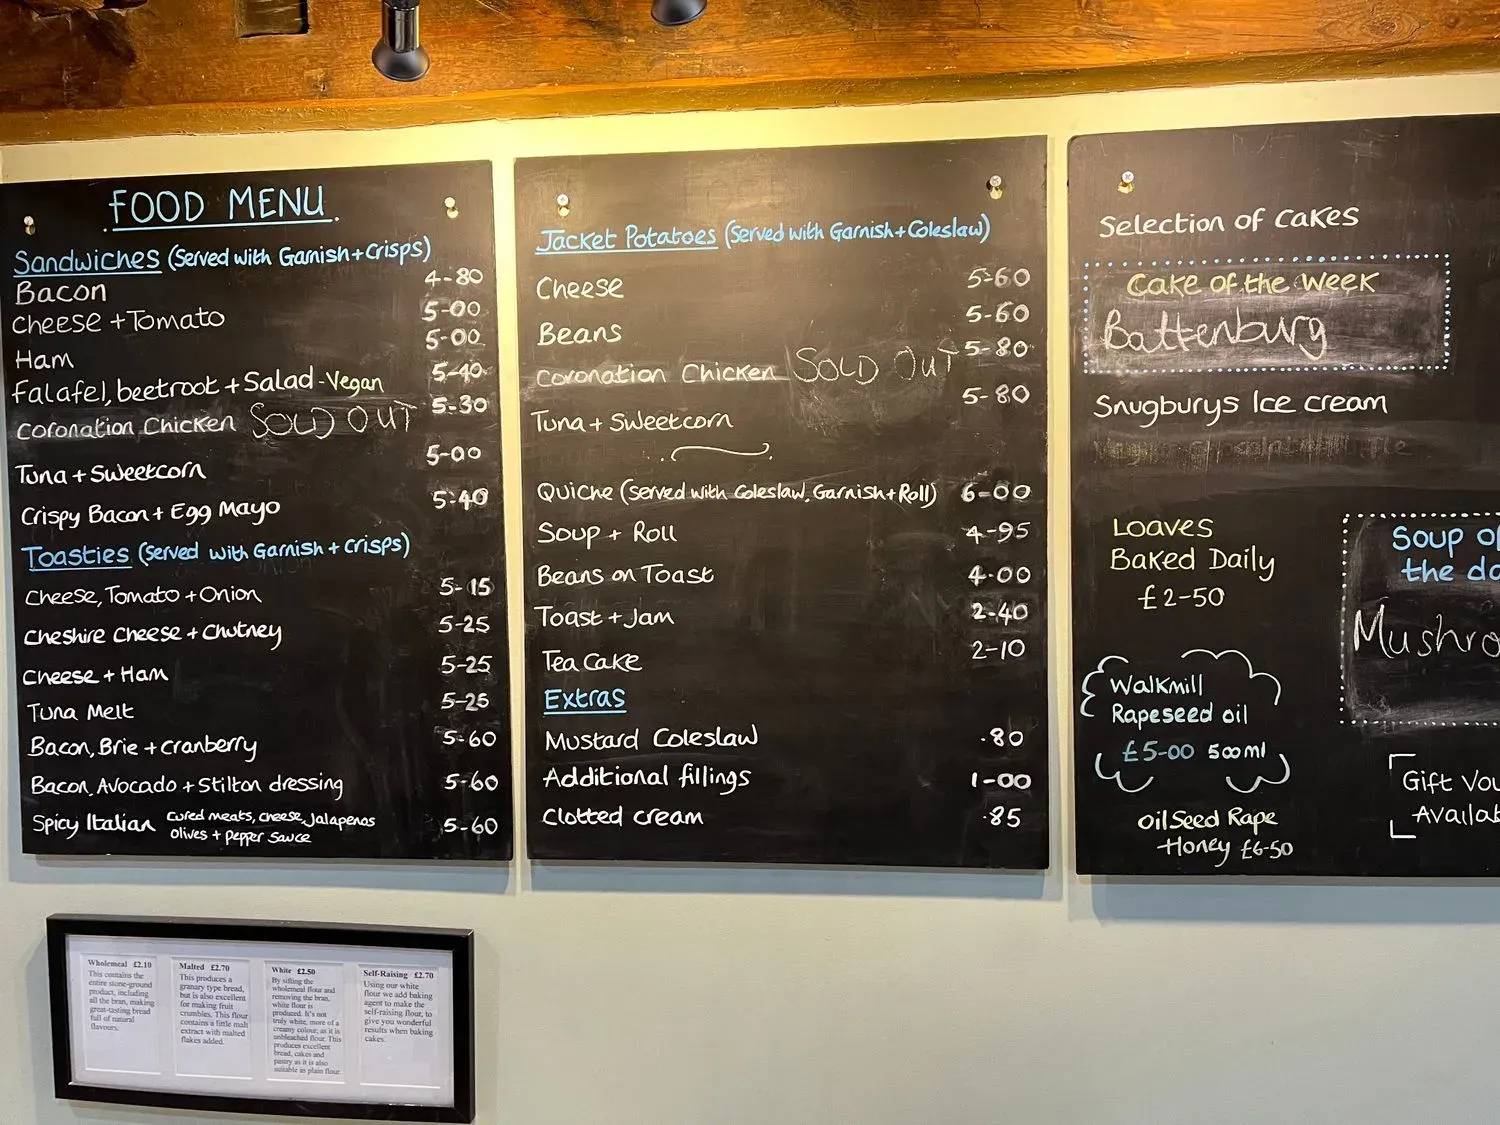 FOOD MENU.
Sandwiches (Served with Garnish + Crisps)
Bacon 4-80
Cheese + Tomato 5-00
Ham 5-00
Falafel, beetroot + Salad - Vegan 5-40
Coronation Chicken SOLD OUT 5-30
Tuna + Sweetcorn 5-00
Crispy Bacon + Egg Mayo 5-40
Toasties (Served with Garnish + Crisps)
Cheese, Tomato + Onion 5-15
Cheshire Cheese + Chutney 5-25
Cheese + Ham 5-25
Tuna Melt 5-25
Bacon, Brie + Cranberry 5-60
Bacon, Avocado + Stilton dressing 5-60
Spicy Italian cured meats, cheese, Jalapenas 5-60
olives + pepper sauce
Jacket Potatoes (Served with Garnish + Coleslaw)
Cheese 5-60
Beans 5-60
Coronation Chicken SOLD OUT 5-80
Tuna + Sweetcorn 5-80
Quiche (Served with Coleslaw, Garnish + Roll) 6-00
Soup + Roll 4-95
Beans on Toast 4-00
Toast + Jam 2-40
Tea Cake 2-10
Extras
Mustard Coleslaw .80
Additional fillings 1-00
Clotted cream .85
Selection of Cakes
Cake of the Week
Battenburg
Snugburys Ice cream
Loaves
Baked Daily
£2-50
Walkmill
Rapeseed oil
£5-00 500ml
Oil Seed Rape
Honey £6-50
Soup of
the da
Mushro
Gift Vou
Availab
Wholemeal £2.10
This contains the
entire stone-ground
product, including
all the bran, making
great-tasting bread
full of natural
flavours.
Malted £2.70
This produces a
granary type bread,
but is also excellent
for making fruit
crumbles. This flour
contains a little malt
extract with malted
flakes added.
White £2.50
By sifting the
wholemeal flour and
removing the bran,
white flour is
produced. It's not
truly white, more of a
creamy colour, as it is
unbleached flour. This
produces excellent
bread, cakes and
pastry as it is also
suitable as plain flour.
Self-Raising £2.70
Using our white
flour we add baking
agent to make the
self-raising flour, to
give you wonderful
results when baking
cakes.